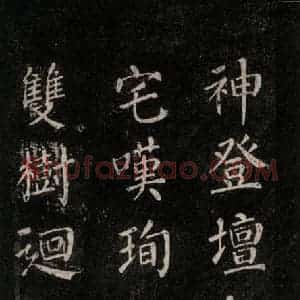 神登壇
宅嘆珣
雙樹迴
shufazidao.com